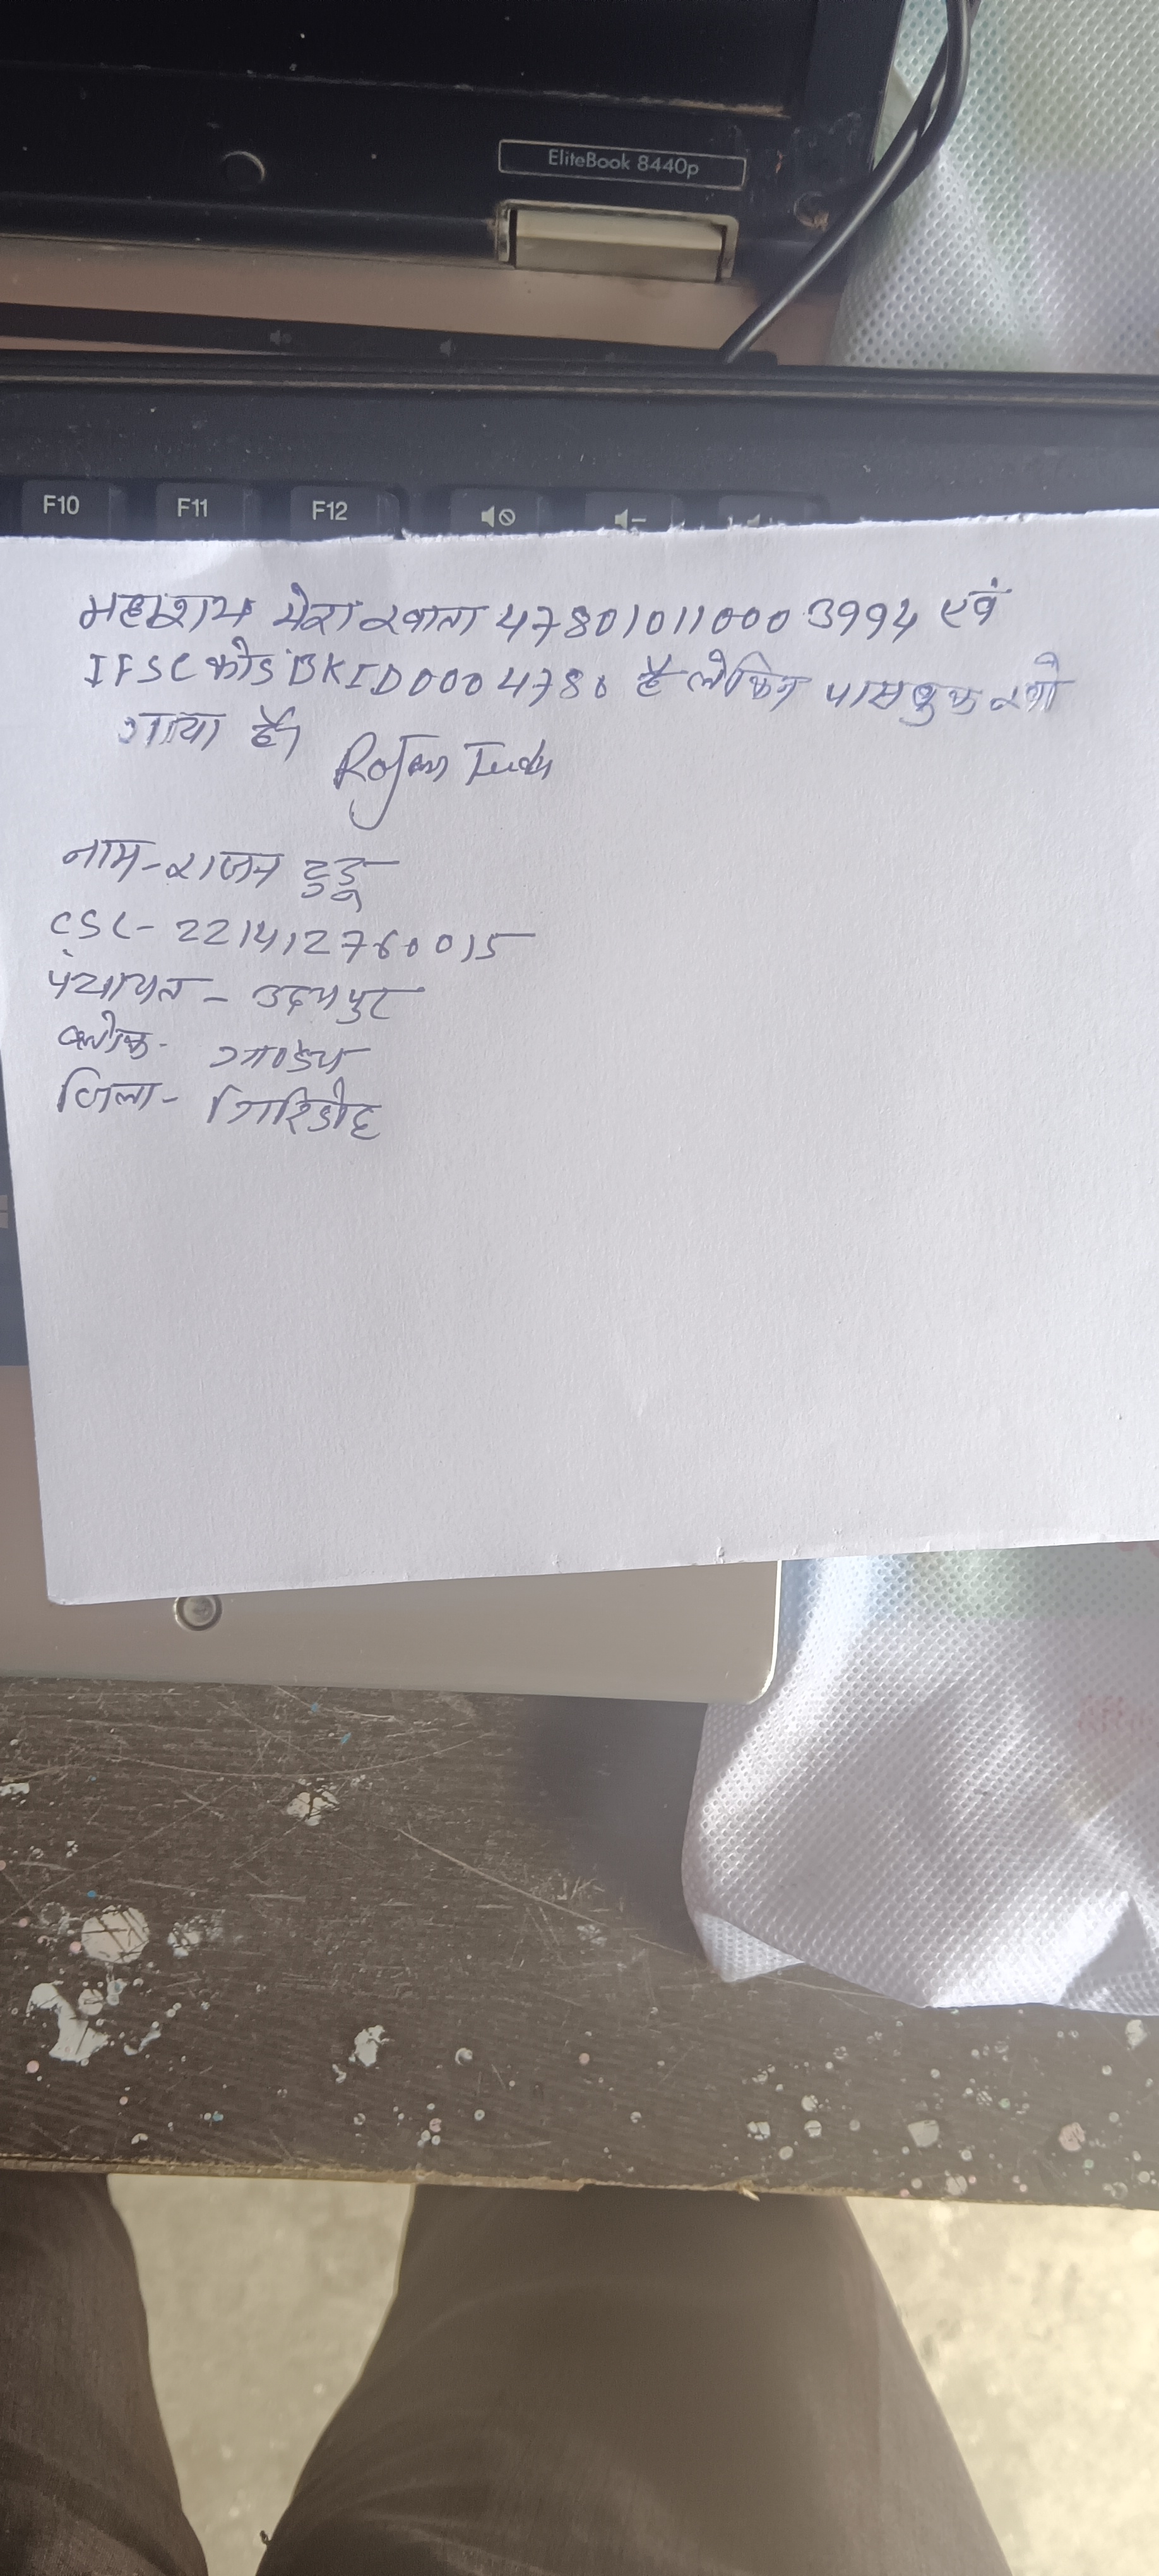 EliteBook 8440p
F10 F11 F12
महाशय मेरा खाता 478010110003994 एवं
IFSC कोड BKID0004780 है लेकिन पासबुक खो
गाया है।
Rajan Tudu
नाम - राजन टुडू
CSC - 221412760015
पंचायत - उदयपुर
ब्लोक - गाण्डेय
जिला - गिरिडीह